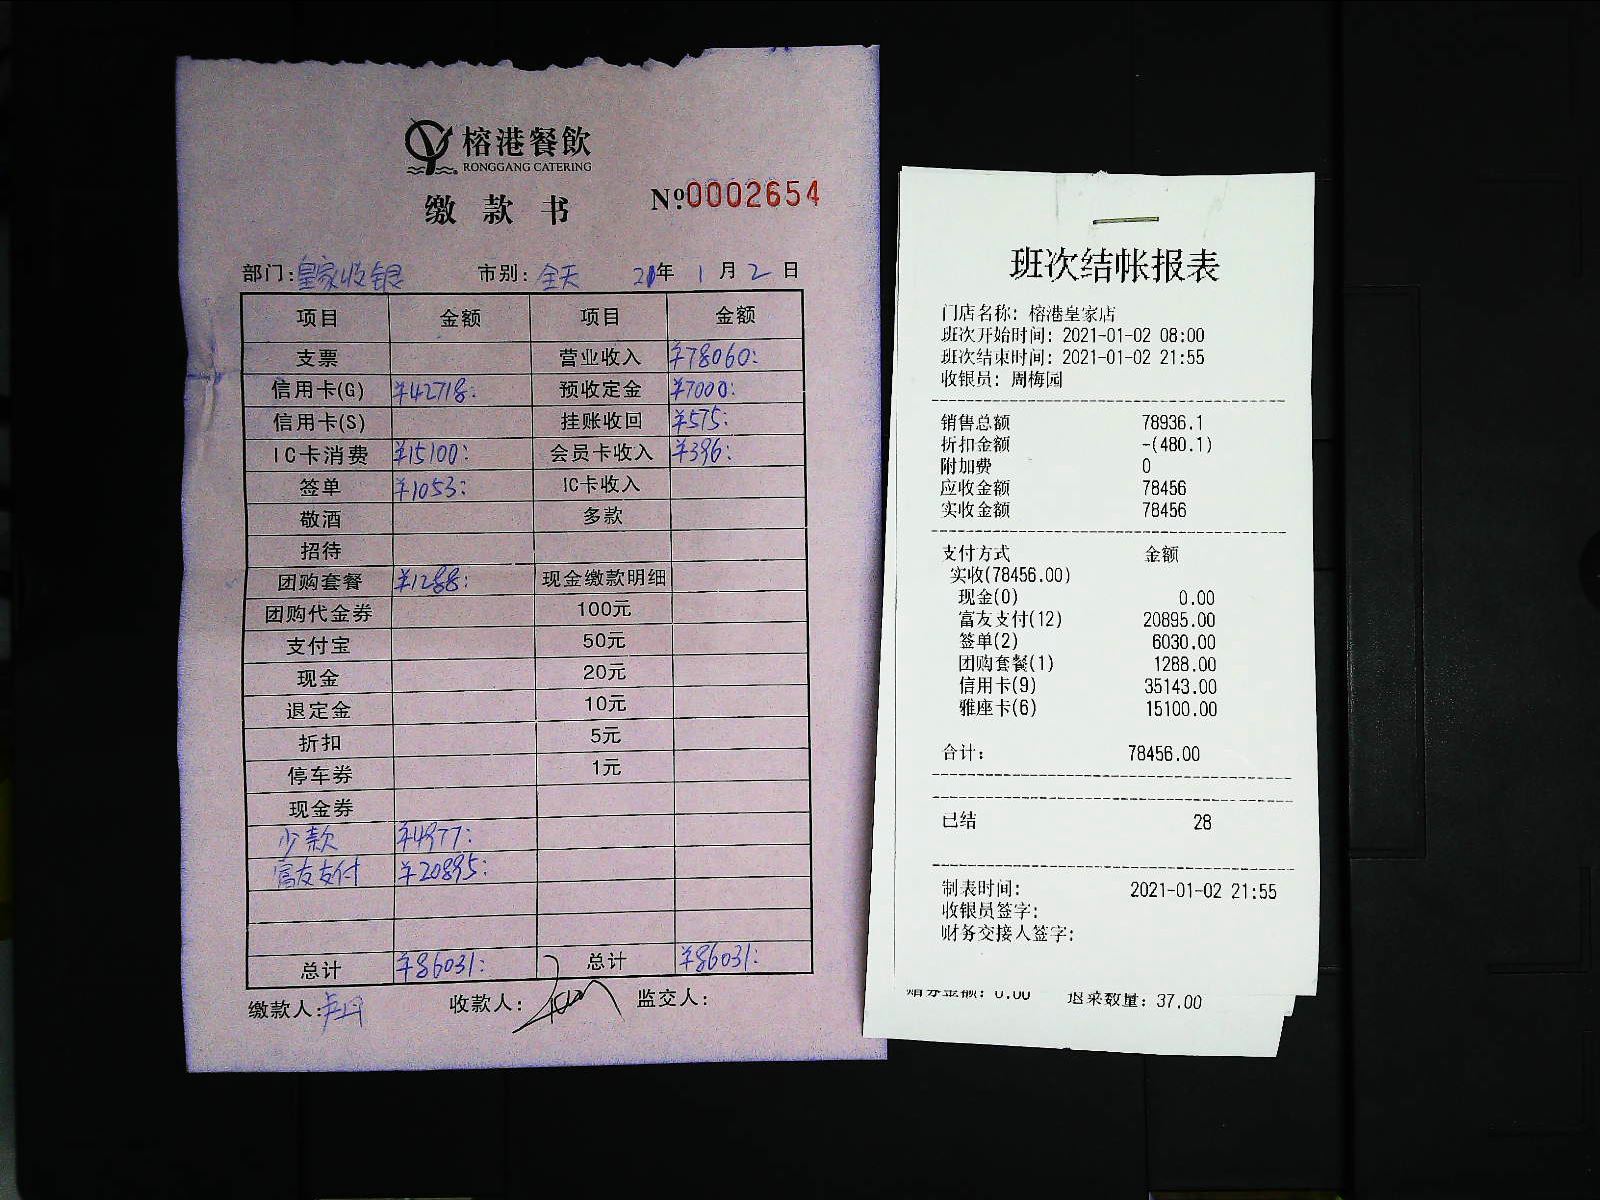 榕港餐飲
RONGGANG CATERING
缴款书 №0002654
部门:皇家收银 市别:全天 21年1月2日
项目 金额 项目 金额
支票 营业收入 ¥78060:
信用卡(G) ¥42718: 预收定金 ¥7000:
信用卡(S) 挂账收回 ¥575:
IC卡消费 ¥15100: 会员卡收入 ¥396:
签单 ¥1053: IC卡收入
敬酒 多款
招待
团购套餐 ¥1288: 现金缴款明细
团购代金券 100元
支付宝 50元
现金 20元
退定金 10元
折扣 5元
停车券 1元
现金券
少款 ¥4977:
富友支付 ¥20895:
总计 ¥86031: 总计 ¥86031:
缴款人: 收款人: 监交人:
班次结帐报表
门店名称: 榕港皇家店
班次开始时间: 2021-01-02 08:00
班次结束时间: 2021-01-02 21:55
收银员: 周梅园
销售总额 78936.1
折扣金额 -(480.1)
附加费 0
应收金额 78456
实收金额 78456
支付方式 金额
实收(78456.00)
现金(0) 0.00
富友支付(12) 20895.00
签单(2) 6030.00
团购套餐(1) 1288.00
信用卡(9) 35143.00
雅座卡(6) 15100.00
合计: 78456.00
已结 28
制表时间: 2021-01-02 21:55
收银员签字:
财务交接人签字:
赠券金额: 0.00 退菜数量: 37.00